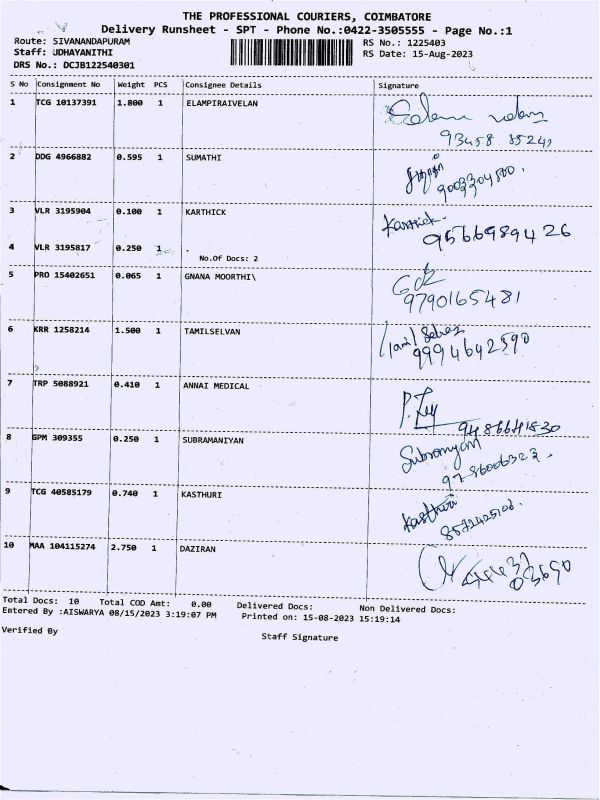 THE PROFESSIONAL COURIERS, COIMBATORE
Delivery Runsheet - SPT - Phone No.:0422-3505555 - Page No.:1
Route: SIVANANDAPURAM
RS No.: 1225403
Staff: UDHAYANITHI
RS Date: 15-Aug-2023
DRS No.: DCJB122540301
S No Consignment No Weight PCS Consignee Details Signature
1 TCG 10137391 1.800 1 ELAMPIRAIVELAN
93458 35241
2 DDG 4966882 0.595 1 SUMATHI
3 VLR 3195904 0.100 1 KARTHICK Karthick
9566989426
4 VLR 3195817 0.250 1 .
No.Of Docs: 2
5 PRO 15402651 0.065 1 GNANA MOORTHI\
9790165481
6 KRR 1258214 1.500 1 TAMILSELVAN Tamil Selvan
9994642590
7 TRP 5088921 0.410 1 ANNAI MEDICAL
9486641830
8 GPM 309355 0.250 1 SUBRAMANIYAN
9786006323
9 TCG 40585179 0.740 1 KASTHURI Kasthuri
10 MAA 104115274 2.750 1 DAZIRAN
Total Docs: 10 Total COD Amt: 0.00 Delivered Docs: Non Delivered Docs:
Entered By :AISWARYA 08/15/2023 3:19:07 PM Printed on: 15-08-2023 15:19:14
Verified By Staff Signature